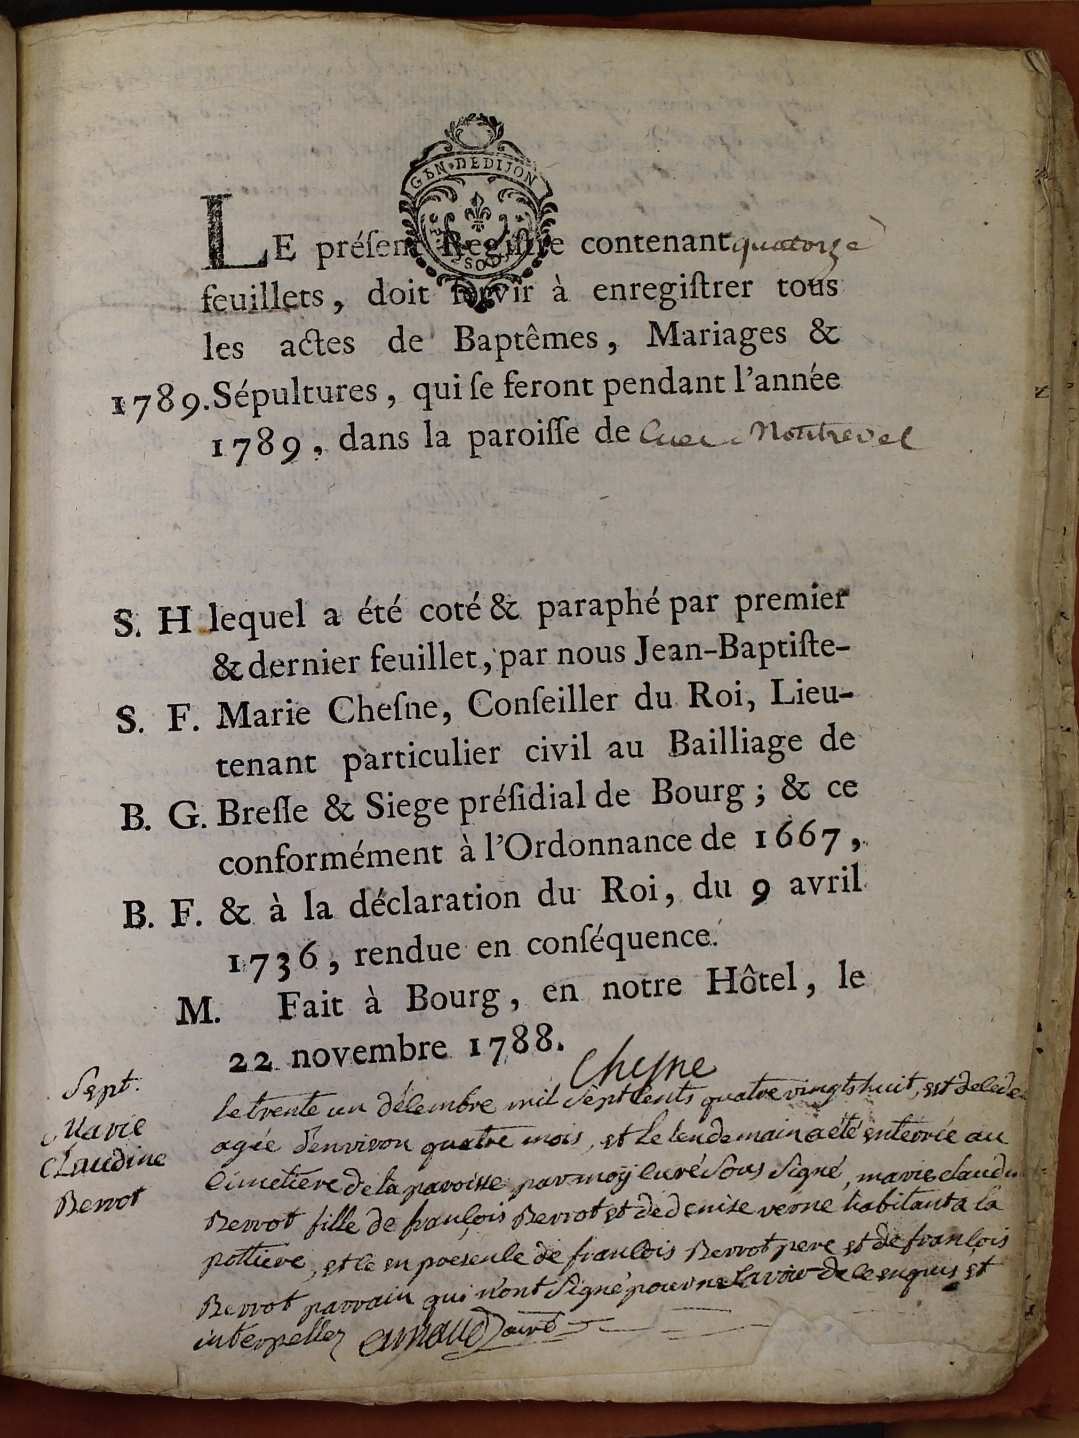 GEN. DE DIJON
LE préſent Regiſtre contenant quatorze
feuillets, doit ſervir à enregiſtrer tous
les actes de Baptêmes, Mariages &
1789. Sépultures, qui ſe feront pendant l'année
1789, dans la paroiſſe de Cuet Montrevel
S. H lequel a été coté & paraphé par premier
& dernier feuillet, par nous Jean-Baptiſte-
S. F. Marie Cheſne, Conſeiller du Roi, Lieu-
tenant particulier civil au Bailliage de
B. G. Breſſe & Siege préſidial de Bourg ; & ce
conformément à l'Ordonnance de 1667,
B. F. & à la déclaration du Roi, du 9 avril
1736, rendue en conſéquence.
M. Fait à Bourg, en notre Hôtel, le
22 novembre 1788.
Chesne
Sept.
Marie
Claudine
Berrot
Le trente un décembre mil sept cents quatre vingts huit, est décédé
agée d'environ quatre mois, et le lendemain a été enterrée au
cimetiere de la paroisse par moÿ curé sous signé, marie claudine
Berrot fille de françois Berrot et de denise verne habitant a la
pottiere, et ce en presence de francois Berrot pere et de francois
Berrot parrain qui n'ont signé pour ne scavoir de ce enquis et
interpellez curé